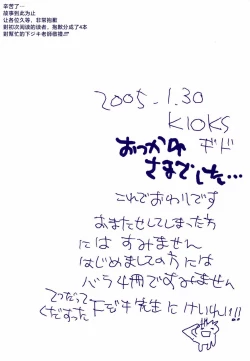 辛苦了…
故事到此为止
让各位久等，非常抱歉
对初次阅读的读者，抱歉分成了4本
对帮忙的下ジキ老師敬禮!!!
2005.1.30
KIOKS
おつかれ ギド
さまでした…
これでおわりです
おまたせしてしまった方
には すみません
はじめましての方には
バラ4冊ですみません
てつだって
くださった 下ジキ先生に けいれい!!!